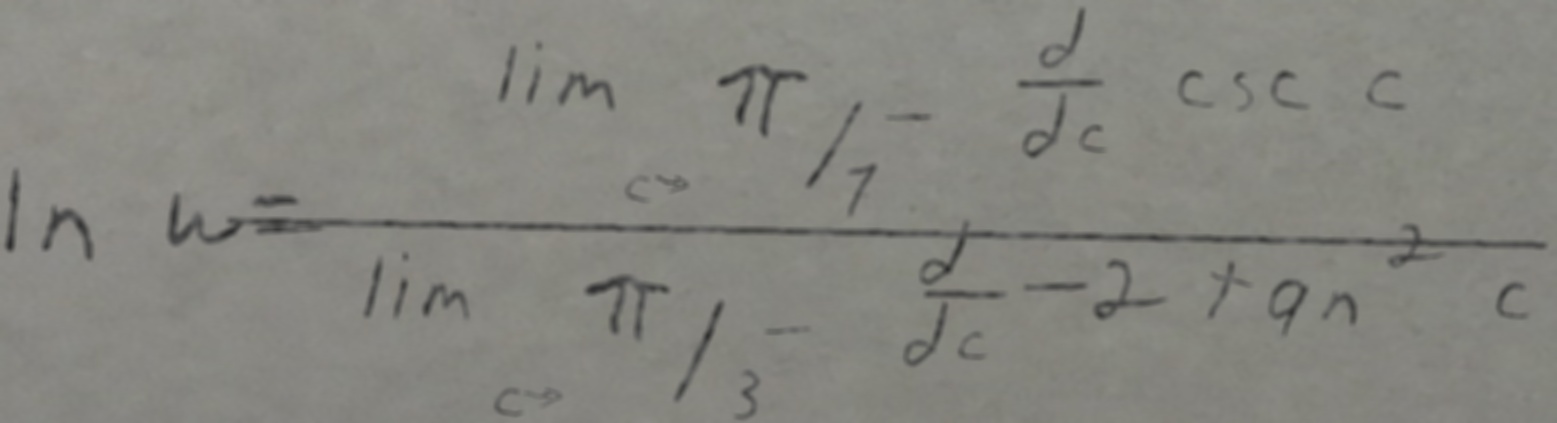 \ln w = \frac{\lim_{c \to \pi/7^-} \frac{d}{dc} \csc c}{\lim_{c \to \pi/3^-} \frac{d}{dc} -2 \tan^2 c}